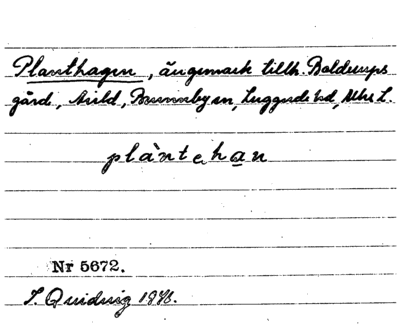 Planthagen, ängsmark tillh. Bolderups
gård, Arild, Brunnby sn, Luggude hd, Mhs L.
plàntehan
Nr 5672.
J. Quidwig 1976.